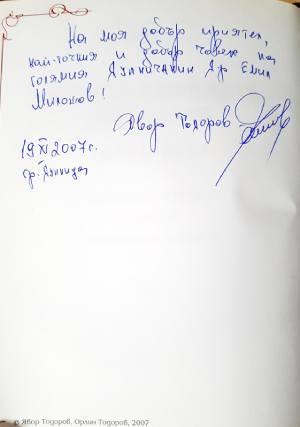 На моя добър приятел,
най-точния и добър човек на
големия Д-р Емил
Милонов!
Явор Тодоров
19 XI 2007 г.
гр.
© Явор Тодоров, Орлин Тодоров, 2007